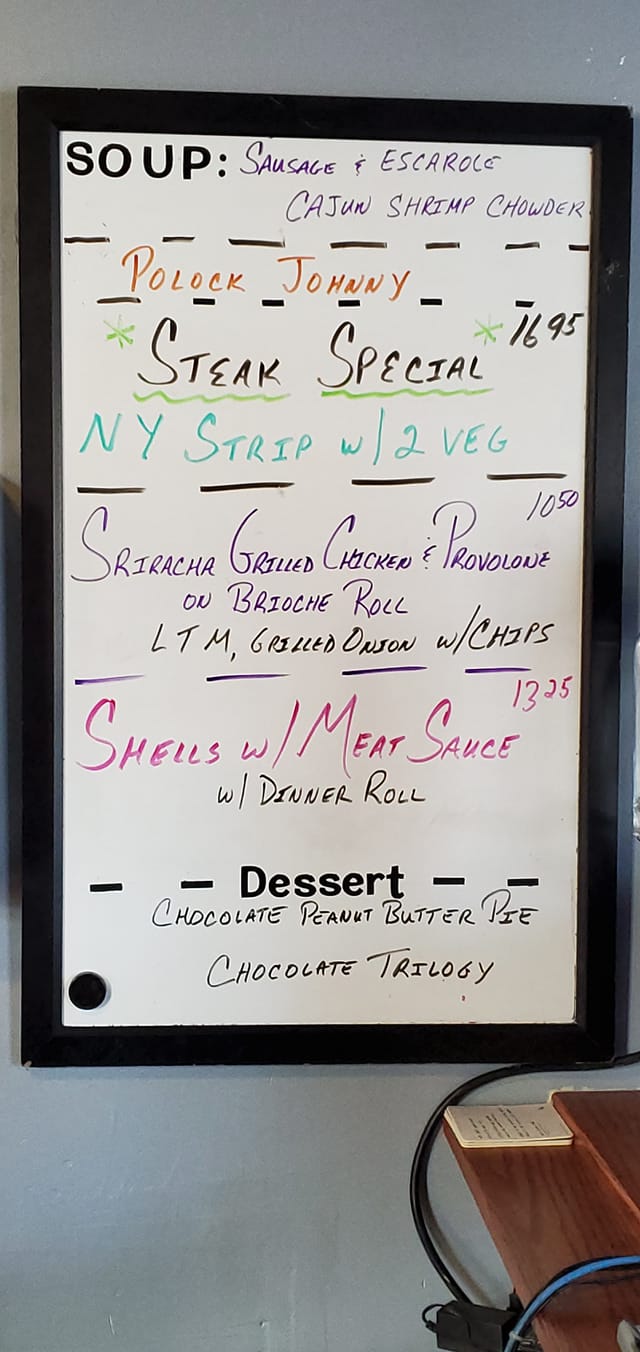 SOUP: SAUSAGE & ESCAROLE
CAJUN SHRIMP CHOWDER
POLOCK JOHNNY
* STEAK SPECIAL * 16 95
NY STRIP W/ 2 VEG
10 50
SRIRACHA GRILLED CHICKEN & PROVOLONE
ON BRIOCHE ROLL
LTM, GRILLED ONION W/ CHIPS
13 25
SHELLS W/ MEAT SAUCE
W/ DINNER ROLL
Dessert
CHOCOLATE PEANUT BUTTER PIE
CHOCOLATE TRILOGY